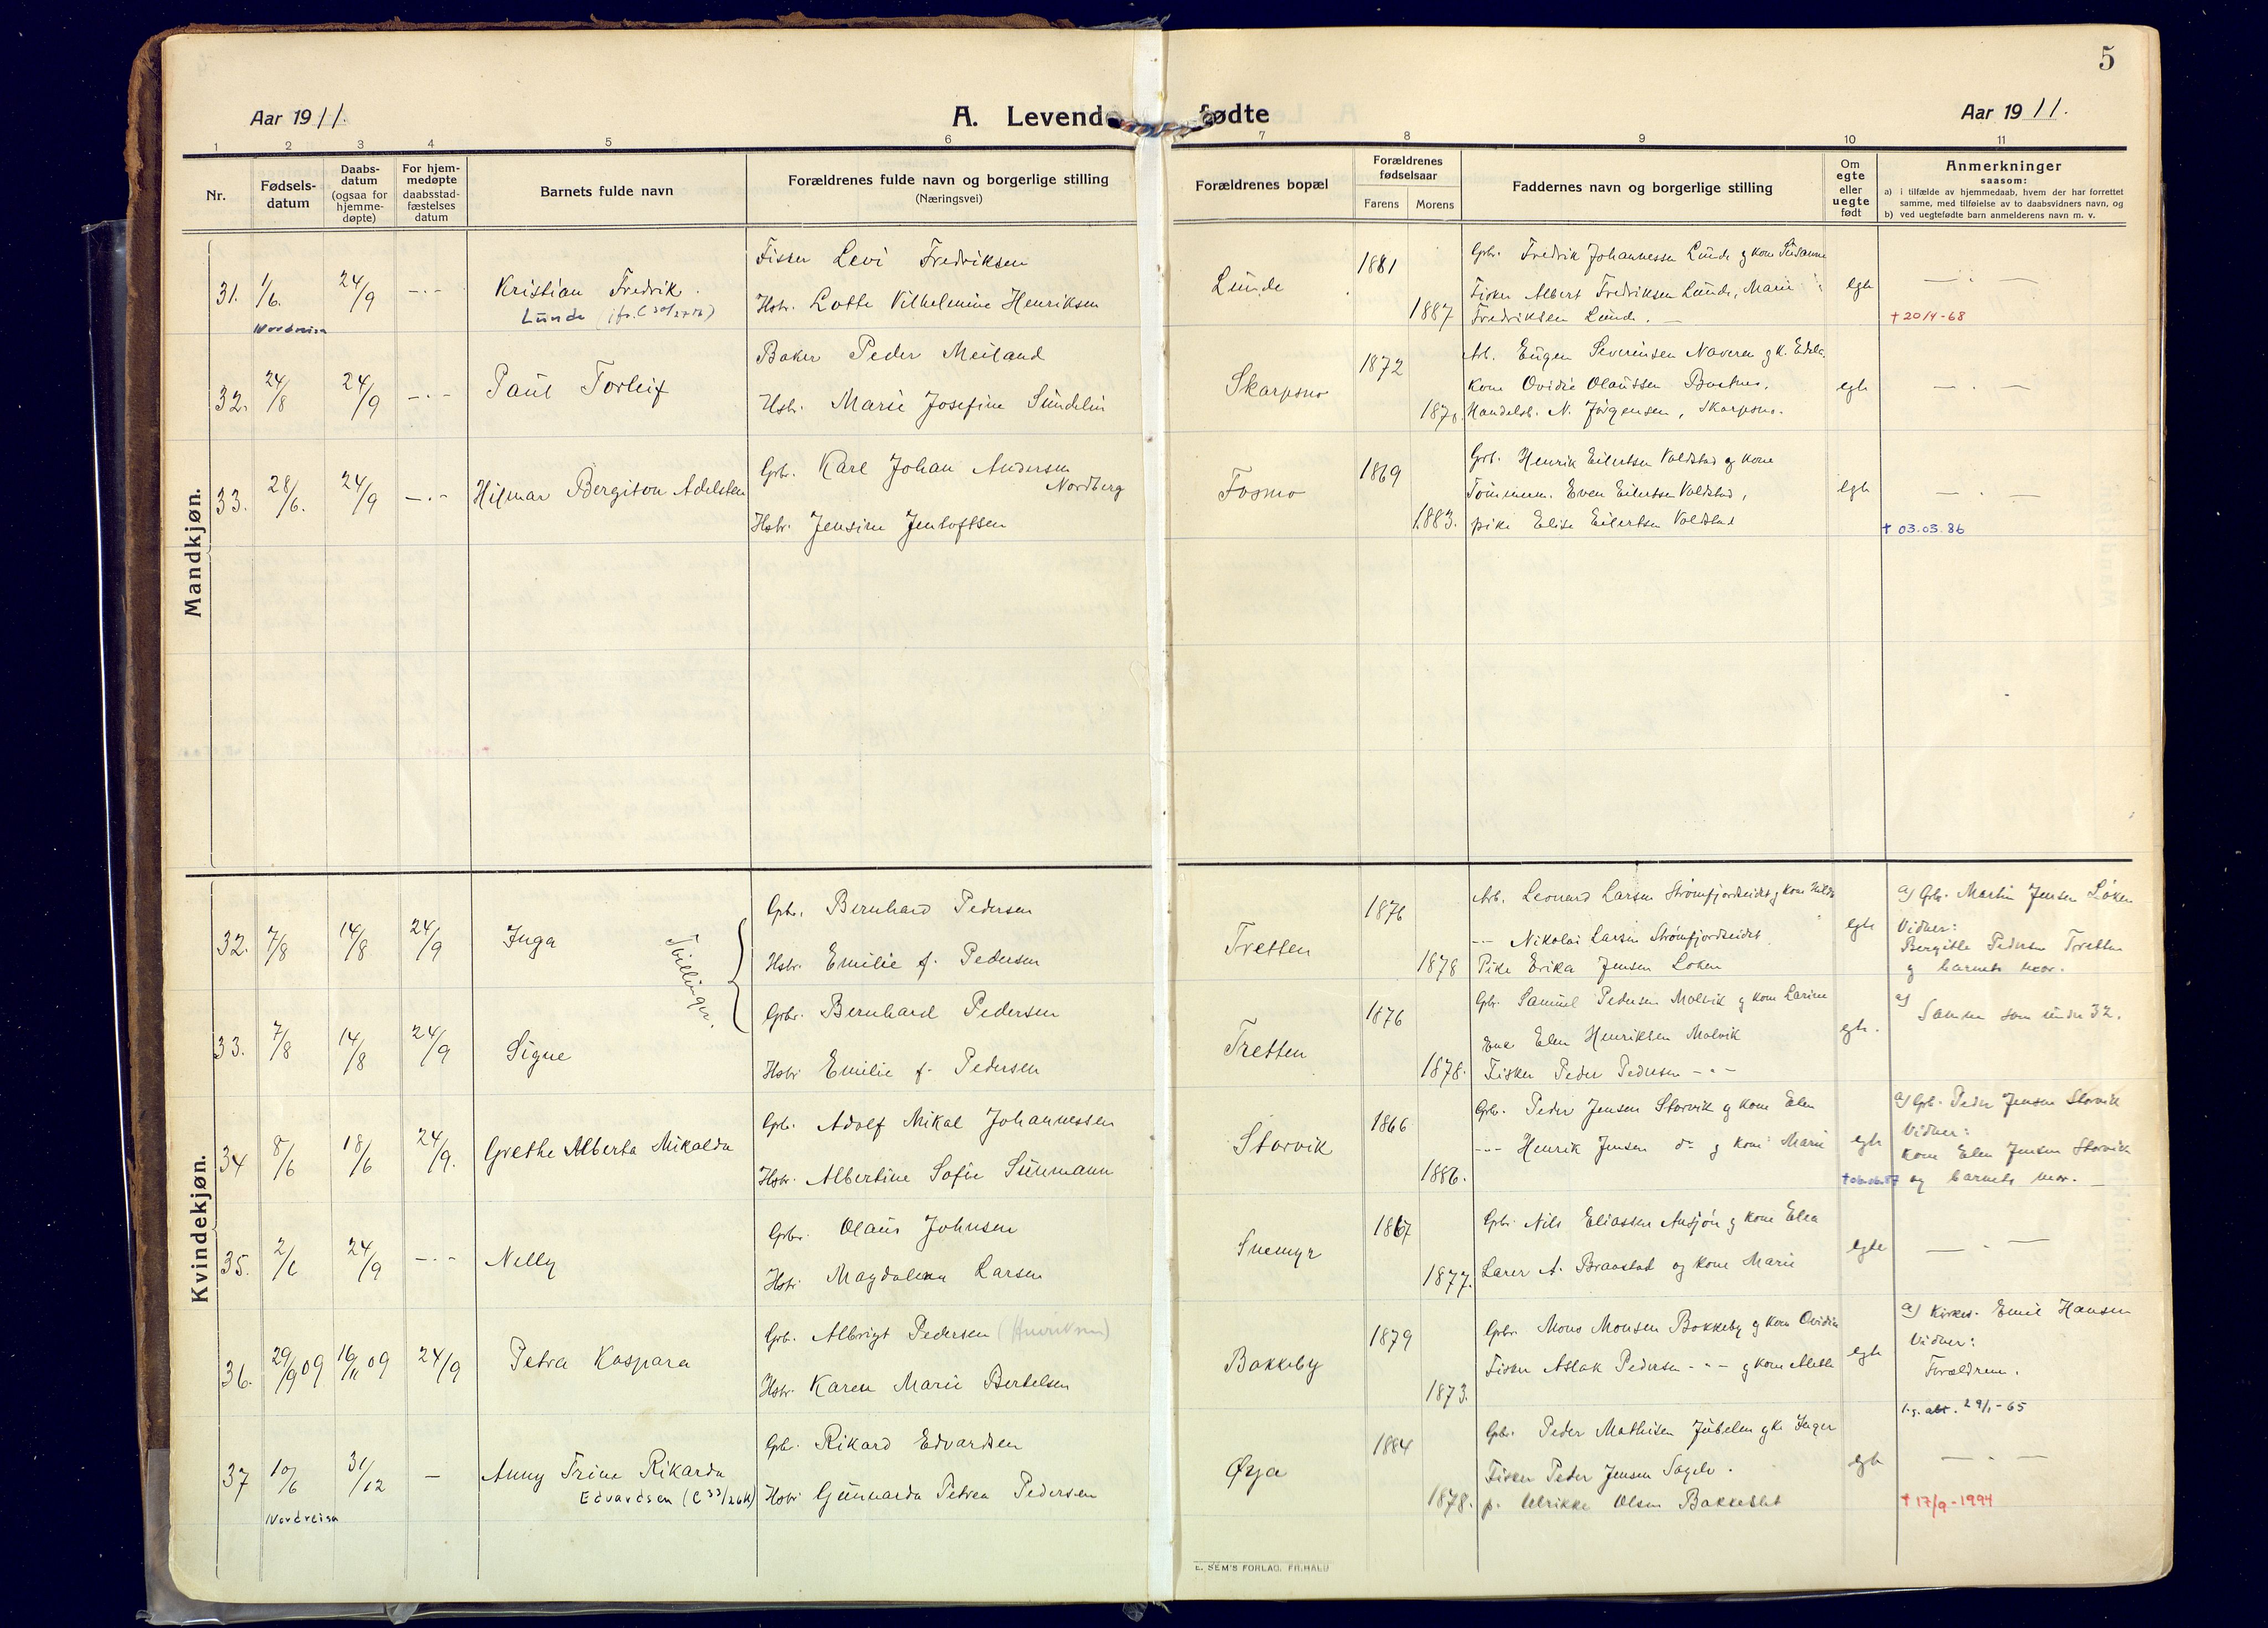 5
Aar 1911.
A. Levende fødte
Aar 1911.
1 2 3 4 5 6 7 8 9 10 11
Nr.
Fødsels-
datum
Daabs-
datum
(ogsaa for
hjemme-
døpte)
For hjem-
medøpte
daabsstad-
fæstelses
datum
Barnets fulde navn
Forældrenes fulde navn og borgerlige stilling
(Næringsvei)
Forældrenes bopæl
Forældrenes
fødselsaar
Farens Morens
Faddernes navn og borgerlige stilling
Om
egte
eller
uegte
født
Anmerkninger
saasom:
a) i tilfælde av hjemmedaab, hvem der har forrettet
samme, med tilføielse av to daabsvidners navn, og
b) ved uegtefødte barn anmelderens navn m. v.
Mandkjøn.
31. 1/6. 24/9 -.- Kristian Fredrik.
Lunde
Nordreisa
Fisker Levi Fredriksen
Hstr. Lotte Vilhelmine Henriksen
Lunde
1881
1887
Gpbr. Fredrik Johannessen Lunde g kone Susanne
Fisker Albert Fredriksen Lunde, Marie
Fredriksen Lunde. -
egte
— . —
† 20/4-68
32. 24/8 24/9 -.- Paul Torleif
Baker Peder Meiland
Hstr. Marie Josefine Sundelin
Skarpsno
1872
Arb. Eugen Severinsen Naveren g k.
Kone Ovidie Olaussen
Handelsb. N. Jörgensen, Skarpsno.
egte
— . —
33. 28/6. 24/9 -.- Hilmar Bergiton Adelsten
Gpb. Karl Johan Andersen
Nordberg
Hstr. Jensine Jentoftsen
Fosmo
1869
1883.
Grb. Henrik Eilertsen Voldstad og kone
Tömmerm. Even Eilertsen Voldstad,
pike Elise Eilertsen Voldstad
egte
— . —
† 03.03.86
Kvindekjøn.
32. 7/8 14/8 24/9 Inga
Tvillinger.
Gpbr. Bernhard Pedersen
Hstr. Emilie f. Pedersen
Tretten
1876
1878
Arb. Leonard Larsen Strømfjordeidet g kone Hilda
-.- Nikolai Larsen Strømfjordeidet
Pike Erika Jensen Loken
egte
a) Gpbr. Martin Jensen Loken
Vidner:
Bergitte Pedersen Tretten
g barnets mor.
33. 7/8 14/8 24/9 Signe
Gpbr. Bernhard Pedersen
Hstr Emilie f. Pedersen
Tretten
1876
1878.
Gpbr. Samuel Pedersen Molvik g kone Larine
Enke Elen Henriksen Molvik
Fisker Peder Pedersen -.-
egte.
a) Samme som under 32.
34 8/6 18/6 24/9. Grethe Alberta Mikalda
Gpb. Adolf Mikal Johannessen
Hstr. Albertine Sofie Surmann
Storvik
1866
1886.
Gpbr. Peder Jensen Storvik g kone Elen
-.- Henrik Jensen do g kone Marie
egte
†06.06.87
a) Gpb. Peder Jensen Storvik
Vidner:
Kone Elen Jensen Storvik
og barnets mor. —
35. 2/6 24/9 -.- Nelly
Gpbr. Olaus Johnsen
Hstr. Magdalena Larsen
Snemyr
1867
1877.
Gpbr. Nils Eliassen Ansjön g kone Elea
Lærer A. Braastad og kone Marie
egte
— . —
36. 29/9 09 16/11 09 24/9 Petra Kaspara
Gpb. Albrigt Pedersen (Henriksen)
Hstr. Karen Marie Bertelsen
Bakkeby
1879
1873.
Gpbr. Mons Monsen Bakkeby g kone Ovidia
Fisker Aslak Pedersen -.- g kone Alette
egte
a) Kirkes. Emil Hansen
Vidner:
Forældrene.
l.g. att. 29/1-65
37 10/6 31/12 — Anny Trine Rikarda
Edvardsen (C 33/26K)
Nordreisa
Gpb. Rikard Edvardsen
Hstr Gunnarda Petrea Pedersen
Øxja
1884
1878.
Gpbr. Peder Mathisen Jubelen g k. Inger
Fisker Peder Jensen Sagelv.
p. Ulrikke Olsen Bakkeslet
egte
— . —
† 17/9-1994
E. SEM'S FORLAG, FR.HALD